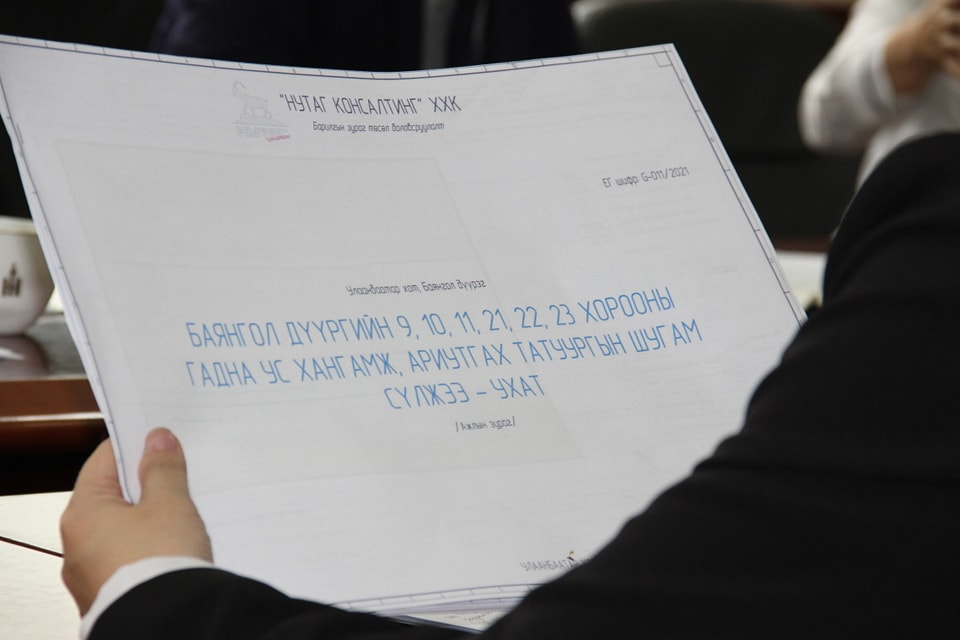 "НУТАГ КОНСАЛТИНГ" ХХК
Барилгын зураг төсөл боловсруулалт
ЕГ шифр G-011/2021
Улаанбаатар хот, Баянгол дүүрэг
БАЯНГОЛ ДҮҮРГИЙН 9, 10, 11, 21, 22, 23 ХОРООНЫ
ГАДНА УС ХАНГАМЖ, АРИУТГАХ ТАТУУРГЫН ШУГАМ
СҮЛЖЭЭ – УХАТ
/Ажлын зураг/